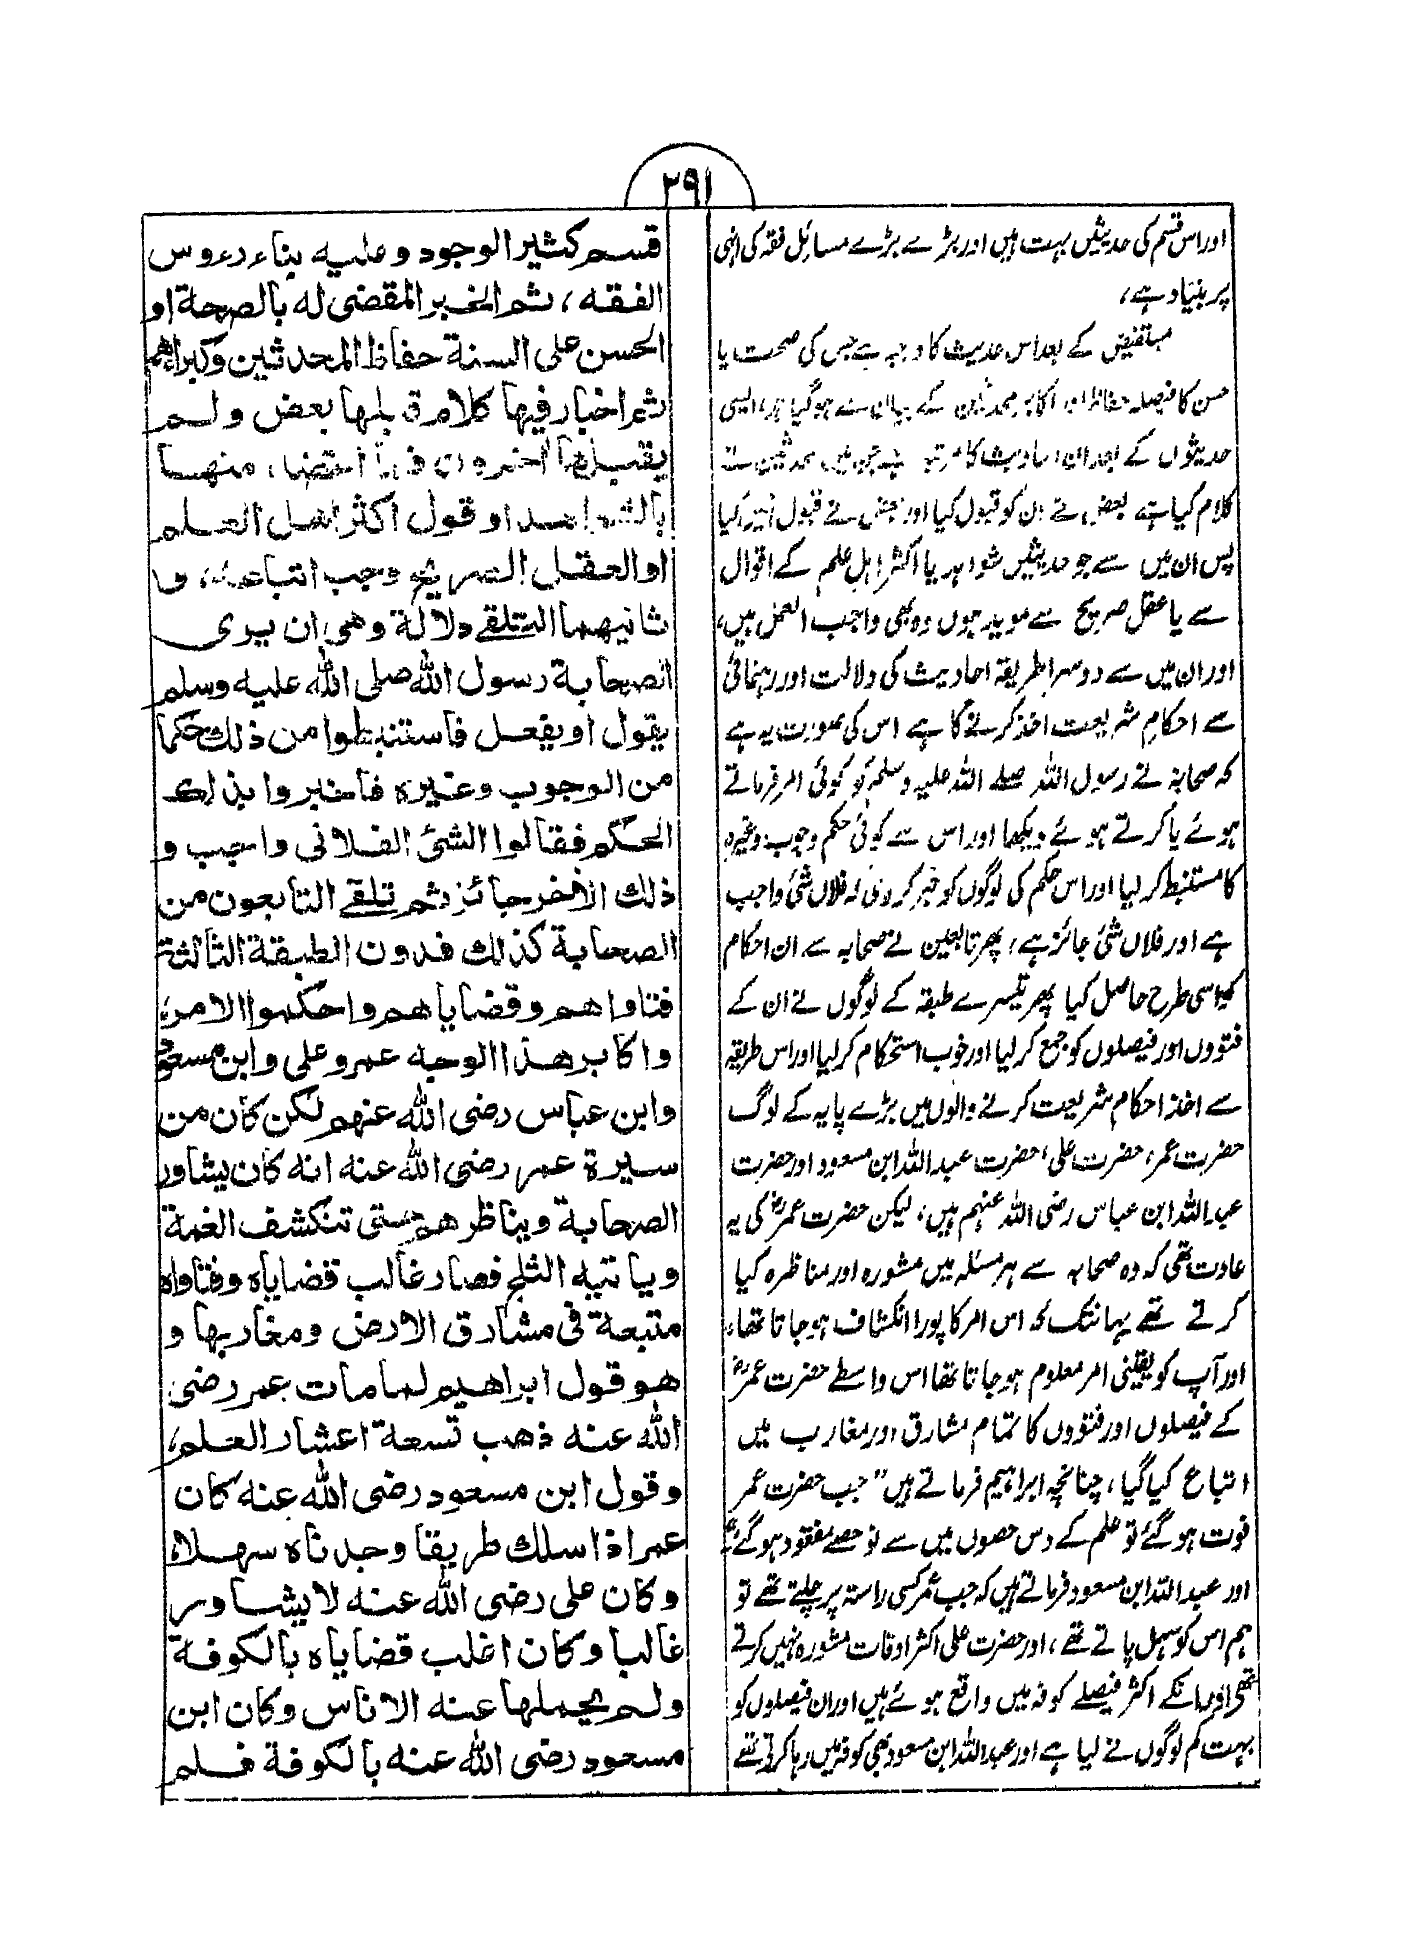 ٢٩١
اور اس قسم کی حدیثیں بہت ہیں اور بڑے بڑے مسائل فقہ کی انہی
پر بنیاد ہے،
مستفیض کے بعد اس حدیث کا درجہ ہے جس کی صحت یا
حسن کا فیصلہ حفاظ اور اکابر محدثین کے بیان سے ہو گیا ہو، ایسی
حدیثوں کے بعد ان احادیث کا مرتبہ ہے جن میں محدثین نے
کلام کیا ہے بعض نے ان کو قبول کیا اور بعض نے قبول نہیں کیا
پس ان میں سے جو حدیثیں شواہد یا اکثر اہل علم کے اقوال
سے یا عقل صریح سے موید ہوں وہ بھی واجب العمل ہیں،
اور ان میں سے دوسرا طریقہ احادیث کی دلالت اور رہنمائی
سے احکام شریعت اخذ کرنے کا ہے اس کی صورت یہ ہے
کہ صحابہ نے رسول اللہ صلے اللہ علیہ وسلم کو کوئی امر فرماتے
ہوئے یا کرتے ہوئے دیکھا اور اس سے کوئی حکم وجوب وغیرہ
کا مستنبط کر لیا اور اس حکم کی لوگوں کو خبر کر دی کہ فلاں شئ واجب
ہے اور فلاں شئ جائز ہے، پھر تابعین نے صحابہ سے ان احکام
کو اسی طرح حاصل کیا پھر تیسرے طبقہ کے لوگوں نے ان کے
فتووں اور فیصلوں کو جمع کر لیا اور خوب استحکام کر لیا اور اس طریقہ
سے اخذ احکام شریعت کرنے والوں میں بڑے پایہ کے لوگ
حضرت عمر، حضرت علی، حضرت عبد اللہ ابن مسعود اور حضرت
عبد اللہ ابن عباس رضی اللہ عنہم ہیں، لیکن حضرت عمرؓ کی یہ
عادت تھی کہ وہ صحابہ سے ہر مسئلہ میں مشورہ اور مناظرہ کیا
کرتے تھے یہانتک کہ اس امر کا پورا انکشاف ہو جاتا تھا،
اور آپ کو یقینی امر معلوم ہو جاتا تھا اس واسطے حضرت عمرؓ
کے فیصلوں اور فتووں کا تمام مشارق اور مغارب میں
اتباع کیا گیا، چنانچہ ابراہیم فرماتے ہیں "جب حضرت عمر
فوت ہو گئے تو علم کے دس حصوں میں سے نو حصے مفقود ہو گئے"
اور عبد اللہ ابن مسعود فرماتے ہیں کہ جب عمر کسی راستہ پر چلتے تھے تو
ہم اس کو سہل پاتے تھے، اور حضرت علی اکثر اوقات مشورہ نہیں کرتے
تھے اور انکے اکثر فیصلے کوفہ میں واقع ہوئے ہیں اور ان فیصلوں کو
بہت کم لوگوں نے لیا ہے اور عبد اللہ ابن مسعود بھی کوفہ میں رہا کرتے تھے
قسم كثير الوجود وعليه بناء رءوس
الفقه، ثم الخبر المقضى له بالصحة او
الحسن على السنة حفاظ المحدثين وكبراءهم
ثم اخبار فيها كلام قبلها بعض ولم
يقبلها اخرون فما اعتضد منها
بالشواهد او قول اكثر اهل العلم
او العقل الصريح وجب اتباعه، و
ثانيهما التلقے دلالة وهى ان يرى
الصحابة رسول الله صلى الله عليه وسلم
يقول او يفعل فاستنبطوا من ذلك حكما
من الوجوب وغيره فاخبروا بذلك
الحكم فقالوا الشئ الفلانى واجب و
ذلك الأخر جائز ثم تلقے التابعون من
الصحابة كذلك فدون الطبقة الثالثة
فتاواهم وقضاياهم واحكموا الامر،
واكابر هذا الوجه عمر وعلى وابن مسعود
وابن عباس رضى الله عنهم لكن كان من
سيرة عمر رضى الله عنه انه كان يشاور
الصحابة ويناظرهم حتى تنكشف الغمة
وياتيه الثلج فصار غالب قضاياه وفتاواه
متبعة فى مشارق الارض ومغاربها و
هو قول ابراهيم لما مات عمر رضى
الله عنه ذهب تسعة اعشار العلم،
وقول ابن مسعود رضى الله عنه كان
عمر اذا سلك طريقا وجدناه سهلا،
وكان على رضى الله عنه لا يشاور
غالبا وكان اغلب قضاياه بالكوفة
ولم يحملها عنه الا ناس وكان ابن
مسعود رضى الله عنه بالكوفة فلم